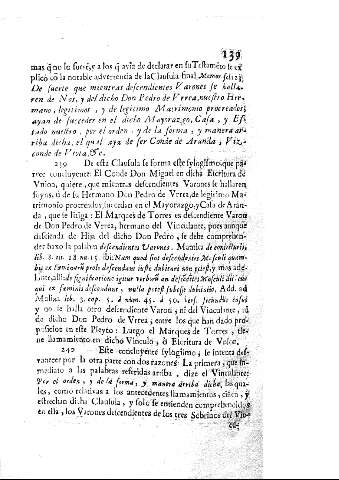 139
mas q̃ no le fuere, y a los q̃ avia de declarar en su Testamẽto
plicò cõ la notable advertencia de la Clausula final
De suerte que mientras descendientes Varones se halla-
ren de Nos, y del dicho Don Pedro de Vrrea, nuestro Her-
mano, legitimos, y de legitimo Matrimonio procreados,
ayan de suceder en el dicho Mayorazgo, Casa, y Es-
tado nuestro, por el orden, y de la forma, y manera ar-
riba dicha, el qual aya de ser Conde de Aranda, Viz-
conde de Viota, &c.
239 De esta Clausula se forma este sylogismo, que pa-
rece concluyente: El Conde Don Miguel en dicha Escritura de
Vnion, quiere, que mientras descendientes Varones se hallaren
suyos, ò de su Hermano Don Pedro de Vrrea, de legitimo Ma-
trimonio procreados, sucedan en el Mayorazgo, y Casa de Aran-
da, que se litiga: El Marques de Torres es descendiente Varon
de Don Pedro de Vrrea, hermano del Vinculante, pues aunque
descienda de Hija del dicho Don Pedro, se debe comprehen-
der baxo la palabra descendientes Varones. Mantica de coniecturis,
lib. 8. tit. 18. nu. 15. ibi: Nam quod sint descendentes Masculi quam-
bis ex fœminea prole descendant iusto dubitari non potest, y mas ade-
lante, alli: de significatione igitur verborum an descendentes Masculi dicantur
qui ex fœminis descendunt, nulla potest subesse dubitatio. Add. ad
Molina lib. 3. cap. 5. à num. 45. à 50. vers. secundus casus
y no se halla otro descendiente Varon, ni del Vinculante, ni
de dicho Don Pedro de Vrrea, entre los que han dado pro-
posiciones en este Pleyto: Luego el Marques de Torres, tie-
ne llamamiẽto en dicho Vinculo, ò Escritura de Vnion.
240 Este concluyente sylogismo, se intenta des-
vanecer por la otra parte con dos razones: La primera, que in-
mediato a las palabras referidas arriba, dize el Vinculante:
Por el orden, y de la forma, y manera arriba dicha, las qua-
les, como relativas a los antecedentes llamamientos, ciñen, y
estrechan dicha Clausula, y solo se entienden comprehendidos
en ella, los Varones descendientes de los tres Sobrinos del Vin-
cu-